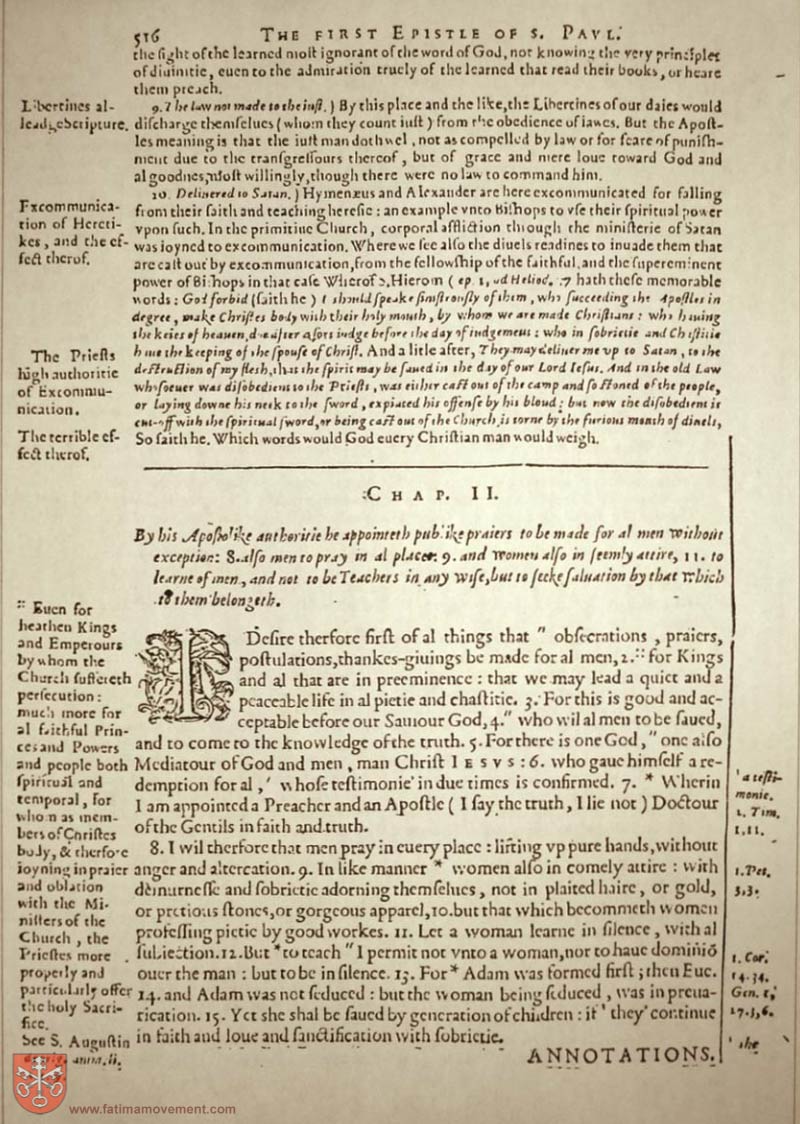 516
THE FIRST EPISTLE OF S. PAVL.
the sight of the learned most ignorant of the word of God, not knowing the very principles
of diuinitie, euen to the admiration truely of the learned that read their books, or heare
them preach.
Libertines al-
leadge Scripture.
9. The law not made to the iust.) By this place and the like, the Libertines of our daies would
discharge themselues (whom they count iust) from the obedience of lawes. But the Apost-
les meaning is that the iust man doth wel, not as compelled by law or for feare of punish-
ment due to the transgressours thereof, but of grace and mere loue toward God and
al goodnes, most willingly, though there were no law to command him.
Excommunica-
tion of Hereti-
kes, and the ef-
fect therof.
10. Deliuered to Satan.) Hymenæus and Alexander are here excommunicated for falling
from their faith and teaching heresie: an example vnto Bishops to vse their spiritual power
vpon such. In the primitiue Church, corporal affliction through the ministerie of Satan
was ioyned to excommunication. Where we see also the diuels readines to inuade them that
are cast out by excommunication, from the fellowship of the faithful, and the supereminent
power of Bishops in that case. Wherof S. Hierom (ep. 1. ad Heliod. c. 7) hath these memorable
words: God forbid (saith he) I should speake sinistrously of them, who succeeding the Apostles in
degree, make Christes body with their holy mouth, by whom we are made Christians: who hauing
the keies of heauen, doe after a sort iudge before the day of iudgement: who in sobrietie and chastitie
haue the keeping of the spouse of Christ. And a litle after, They may deliuer me vp to Satan, to the
destruction of my flesh, that the spirit may be saued in the day of our Lord Iesus. And in the old Law
whosoeuer was disobedient to the Priests, was either cast out of the camp and so stoned of the people,
or laying downe his neck to the sword, expiated his offense by his bloud: but now the disobedient is
cut-off with the spiritual sword, or being cast out of the Church, is torne by the furious mouth of diuels,
So saith he. Which words would God euery Christian man would weigh.
The Priests
high authoritie
of Excommu-
nication.
The terrible ef-
fect therof.
CHAP. II.
By his Apostolike authoritie he appointeth publike praiers to be made for al men without
exception: 8. also men to pray in al places: 9. and women also in seemly attire, 11. to
learne of men, and not to be Teachers in any wise, but to seeke saluation by that which
to them belongeth.
I Desire therfore first of al things that " obsecrations, praiers,
postulations, thankes-giuings be made for al men, 2. :: for Kings
and al that are in preeminence: that we may lead a quiet and a
peaceable life in al pietie and chastitie. 3. For this is good and ac-
ceptable before our Sauiour God, 4. " who wil al men to be saued,
and to come to the knowledge of the truth. 5. For there is one God, " one also
Mediatour of God and men, man Christ IESVS: 6. who gaue himself a re-
demption for al, ' whose testimonie' in due times is confirmed. 7. * Wherin
I am appointed a Preacher and an Apostle (I say the truth, I lie not) Doctour
of the Gentils in faith and truth.
8. I wil therfore that men pray in euery place: lifting vp pure hands, without
anger and altercation. 9. In like manner * women also in comely attire: with
demurnesse and sobrietie adorning themselues, not in plaited haire, or gold,
or pretious stones, or gorgeous apparel, 10. but that which becommeth women
professing pietie by good workes. 11. Let a woman learne in silence, with al
subiection. 12. But * to teach " I permit not vnto a woman, nor to haue dominiõ
ouer the man: but to be in silence. 13. For * Adam was formed first; then Eue.
14. and Adam was not seduced: but the woman being seduced, was in preua-
rication. 15. Yet she shal be saued by generation of children: if ' they' continue
in faith and loue and sanctification with sobrietie.
:: Euen for
heathen Kings
and Emperours
by whom the
Church suffereth
persecution:
much more for
al faithful Prin-
ces and Powers
and people both
spiritual and
temporal, for
whom as mem-
bers of Christes
body, & therfore
ioyning in praier
and oblation
with the Mi-
nisters of the
Church, the
Priestes more
properly and
particularly offer
the holy Sacri-
fice.
See S. Augustin
' a testi-
monie.
1. Tim.
1, 11.
1. Pet.
3, 3.
1. Cor.
14, 34.
Gen. 1,
27. 3, 6.
' she
ANNOTATIONS.
www.fatimamovement.com